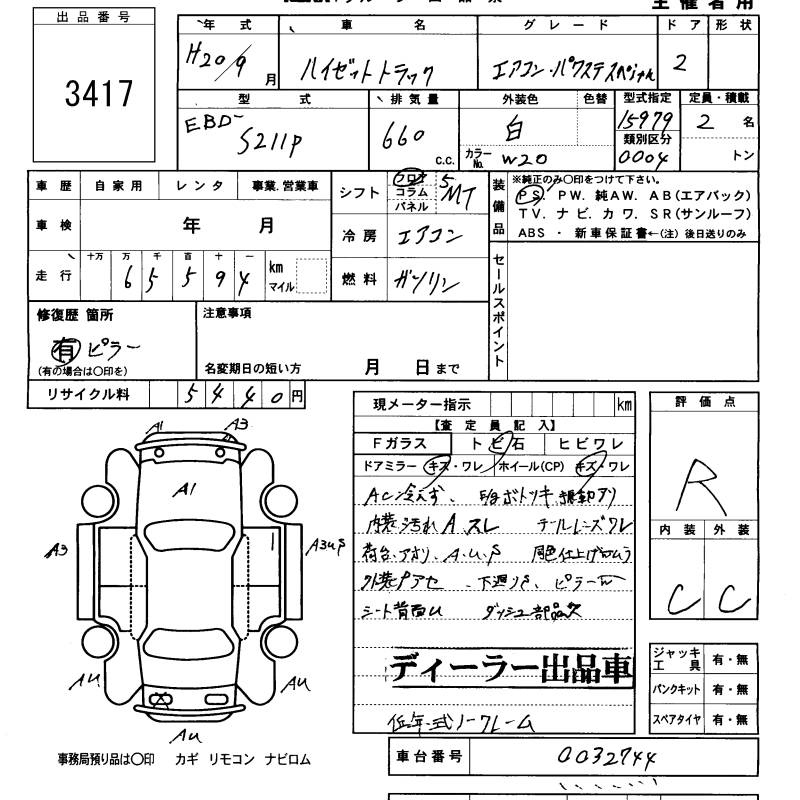 主催者用
出品番号
3417
年式 車名 グレード ドア 形状
H20/9 月 ハイゼットトラック エアコン・パワステスペシャル 2
型式 排気量 外装色 色替 型式指定 定員・積載
EBD-
S211P 660 c.c. 白 15979 2 名
類別区分
カラーNo. W20 0004 トン
車歴 自家用 レンタ 事業.営業車
シフト フロア コラム パネル 5 MT
装備品
※純正のみ〇印をつけて下さい。
PS. PW. 純AW. AB(エアバック)
TV. ナビ. カワ. SR(サンルーフ)
ABS ・ 新車保証書←(注) 後日送りのみ
車検 年 月
冷房 エアコン
走行 十万 万 千 百 十 一
6 5 5 9 4 km マイル
燃料 ガソリン
セールスポイント
修復歴 箇所 注意事項
有 ピラー
(有の場合は〇印を) 名変期日の短い方 月 日まで
リサイクル料 5 4 4 0 円
現メーター指示 km
【査定員記入】
Fガラス トビ石 ヒビワレ
ドアミラー キズ・ワレ ホイール(CP) キズ・ワレ
AC冷えず、
内装汚れ A.スレ テールレンズワレ
荷台.アオリ.A.U.S
シート背面U ダッシュ部品欠
ディーラー出品車
低年式ノークレーム
評価点
R
内装 外装
C C
A1 A3
A1
A3 A3US
AU AU
AU
ジャッキ 工具 有・無
パンクキット 有・無
スペアタイヤ 有・無
事務局預り品は〇印 カギ リモコン ナビロム
車台番号 0032744